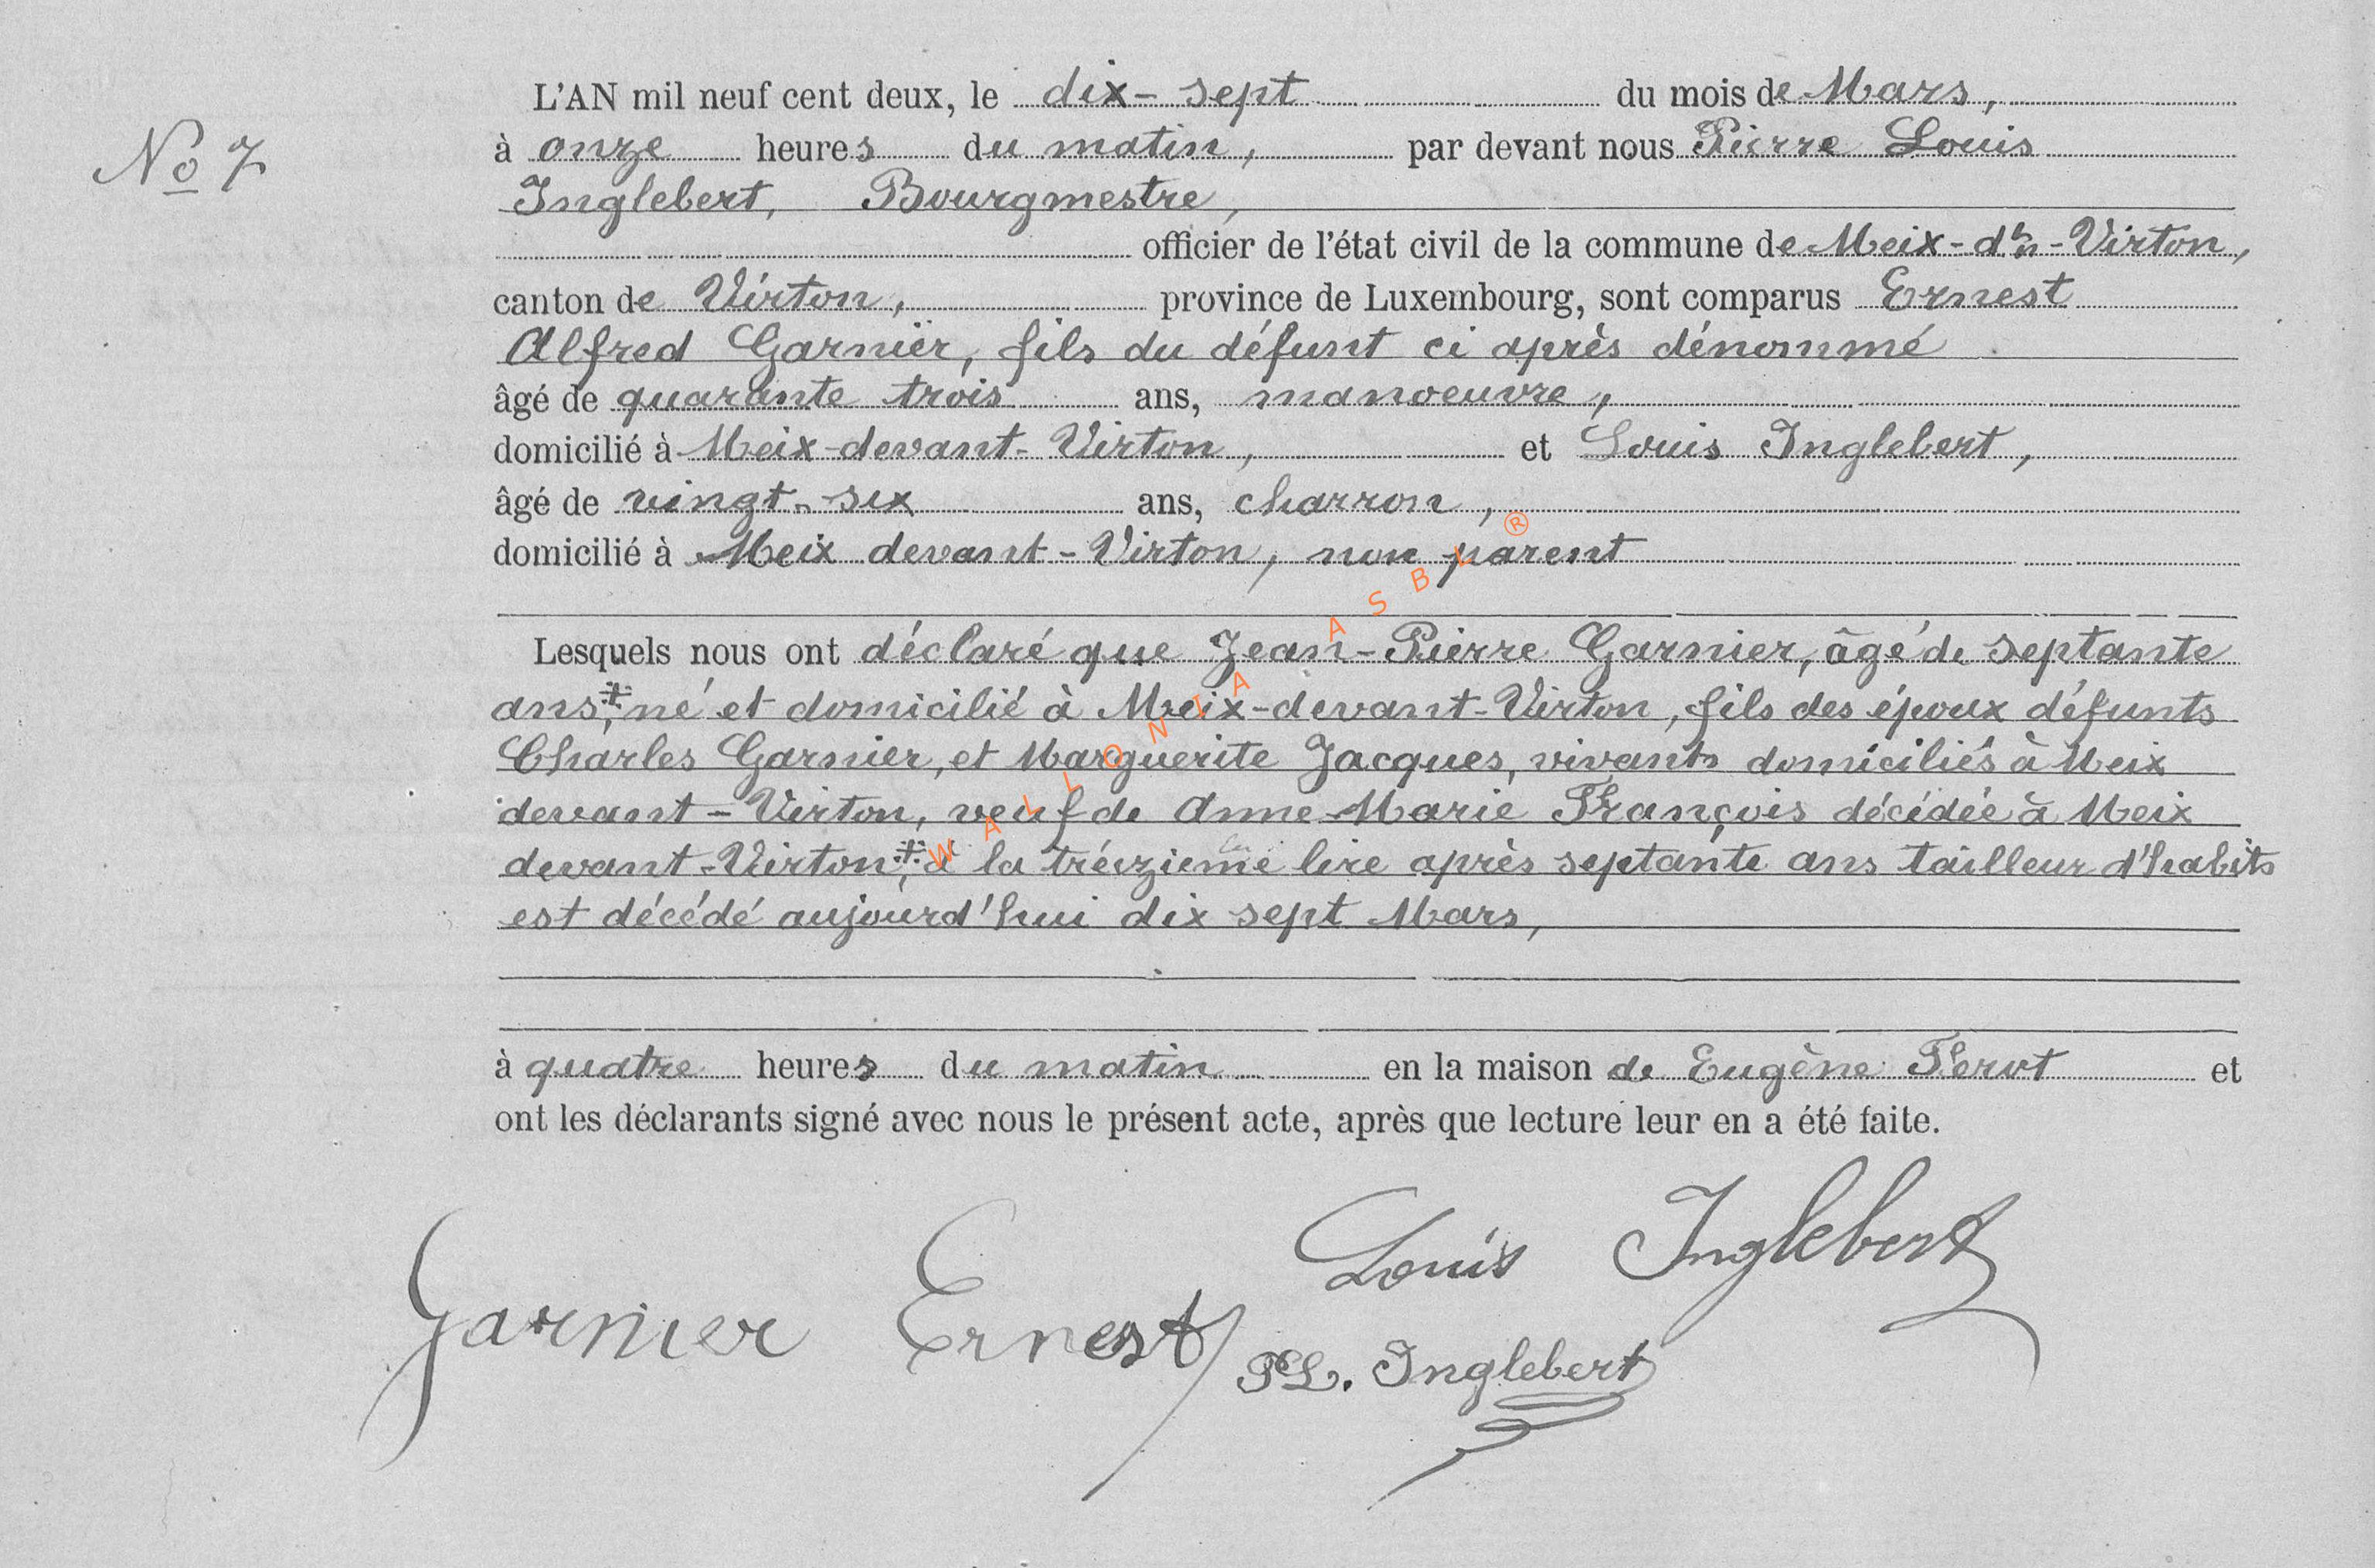 No 7
L'AN mil neuf cent deux, le dix-sept du mois de Mars,
à onze heures du matin, par devant nous Pierre Louis
Inglebert, Bourgmestre,
officier de l'état civil de la commune de Meix-dt-Virton,
canton de Virton, province de Luxembourg, sont comparus Ernest
Alfred Garnier, fils du défunt ci après dénommé
âgé de quarante trois ans, manoeuvre,
domicilié à Meix-devant-Virton, et Louis Inglebert,
âgé de vingt-six ans, charron,
domicilié à Meix devant-Virton, non parent
Lesquels nous ont déclaré que Jean-Pierre Garnier, âgé de septante
ans,‡ né et domicilié à Meix-devant-Virton, fils des époux défunts
Charles Garnier, et Marguerite Jacques, vivants domiciliés à Meix
devant-Virton, veuf de Anne-Marie François décédée à Meix
devant-Virton,‡ à la treizième lire après septante ans tailleur d'habits
est décédé aujourd'hui dix sept Mars,
à quatre heures du matin en la maison de Eugène Perot et
ont les déclarants signé avec nous le présent acte, après que lecture leur en a été faite.
Louis Inglebert
Garnier Ernest
PL. Inglebert
WALLONIA ASBL ®